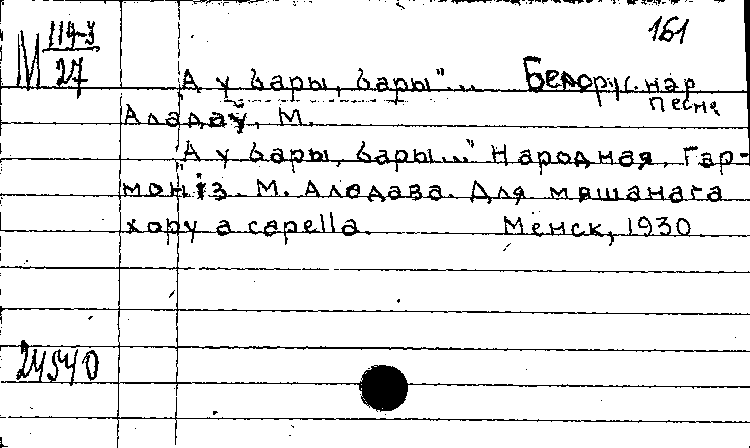 161
М 114-3
27
"А у бары, бары"... Белорус. нар
песня
Аладаў, М.
"А у бары, бары..." Народная. Гар-
моніз. М. Аладава. Для мяшанага
хору a capella. Менск, 1930.
24540